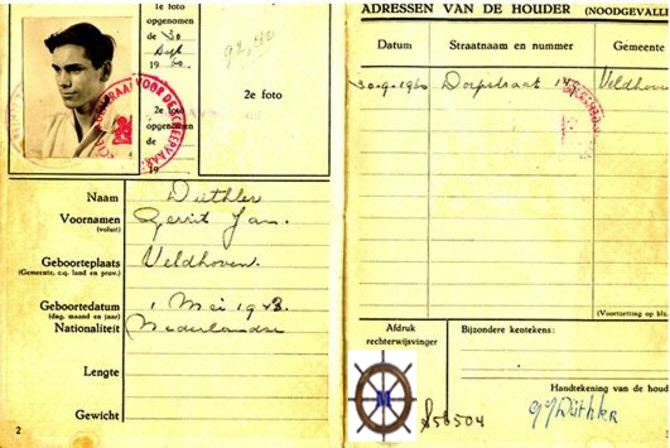 1e foto
opgenomen
de 30
Sept
1960.
92,40
2e foto
2e foto
opgenomen
de
19
DIRECTORAAT VOOR DE SCHEEPVAART
Naam Düthler
Voornamen Gerrit Jan.
(voluit)
Geboorteplaats Veldhoven.
(Gemeente, c.q. land en prov.)
Geboortedatum 1 Mei 1943.
(dag, maand en jaar)
Nationaliteit Nederlandse
Lengte
Gewicht
2
ADRESSEN VAN DE HOUDER (NOODGEVALLI
Datum Straatnaam en nummer Gemeente
30-9-1960 Dorpstraat Veldhoven
(Voortzetting op blz.
Afdruk
rechterwijsvinger
Bijzondere kentekens:
M
Handtekening van de houd
858504
GJ Düthler